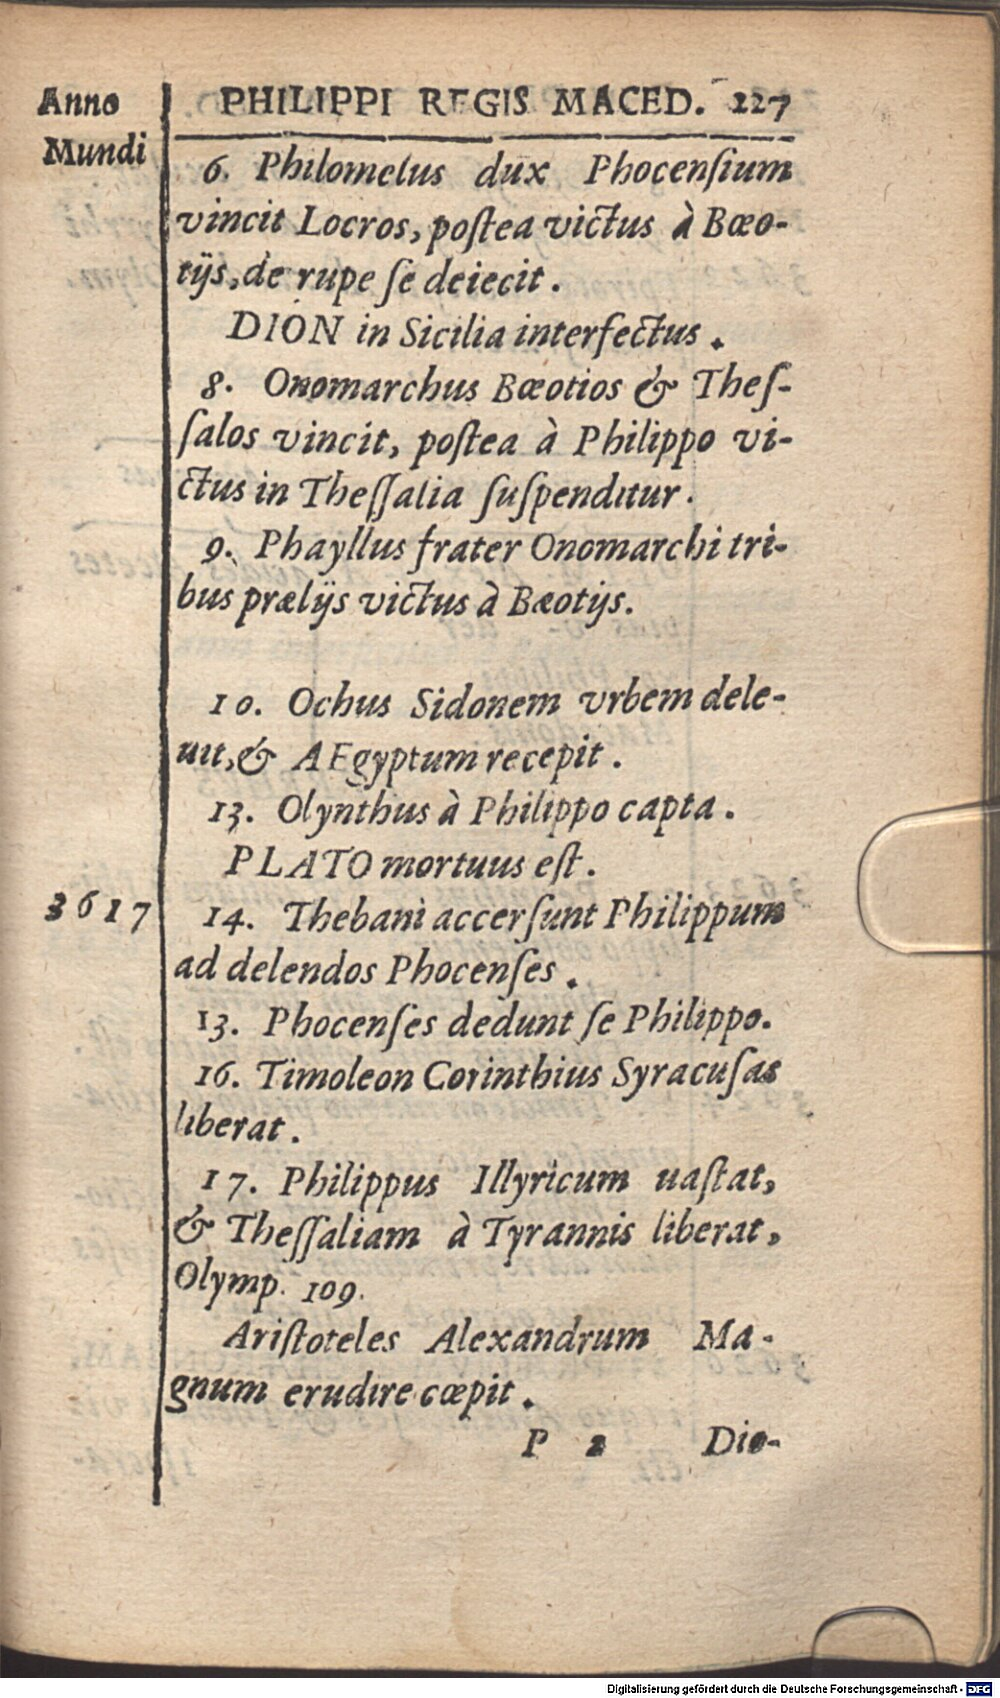 Anno
Mundi
PHILIPPI REGIS MACED. 227
6. Philomelus dux Phocenſium
vincit Locros, poſtea victus à Bœo-
tijs, de rupe ſe deiecit.
DION in Sicilia interfectus.
8. Onomarchus Bœotios & Theſ-
ſalos vincit, poſtea à Philippo vi-
ctus in Theſſalia ſuſpenditur.
9. Phayllus frater Onomarchi tri-
bus prælijs victus à Bæotijs.
10. Ochus Sidonem vrbem dele-
uit, & AEgyptum recepit.
13. Olynthus à Philippo capta.
PLATO mortuus eſt.
3617
14. Thebani accerſunt Philippum
ad delendos Phocenſes.
13. Phocenſes dedunt ſe Philippo.
16. Timoleon Corinthius Syracuſas
liberat.
17. Philippus Illyricum uaſtat,
& Theſſaliam à Tyrannis liberat,
Olymp. 109.
Ariſtoteles Alexandrum Ma-
gnum erudire cœpit.
P 2 Dio-
Digitalisierung gefördert durch die Deutsche Forschungsgemeinschaft - DFG